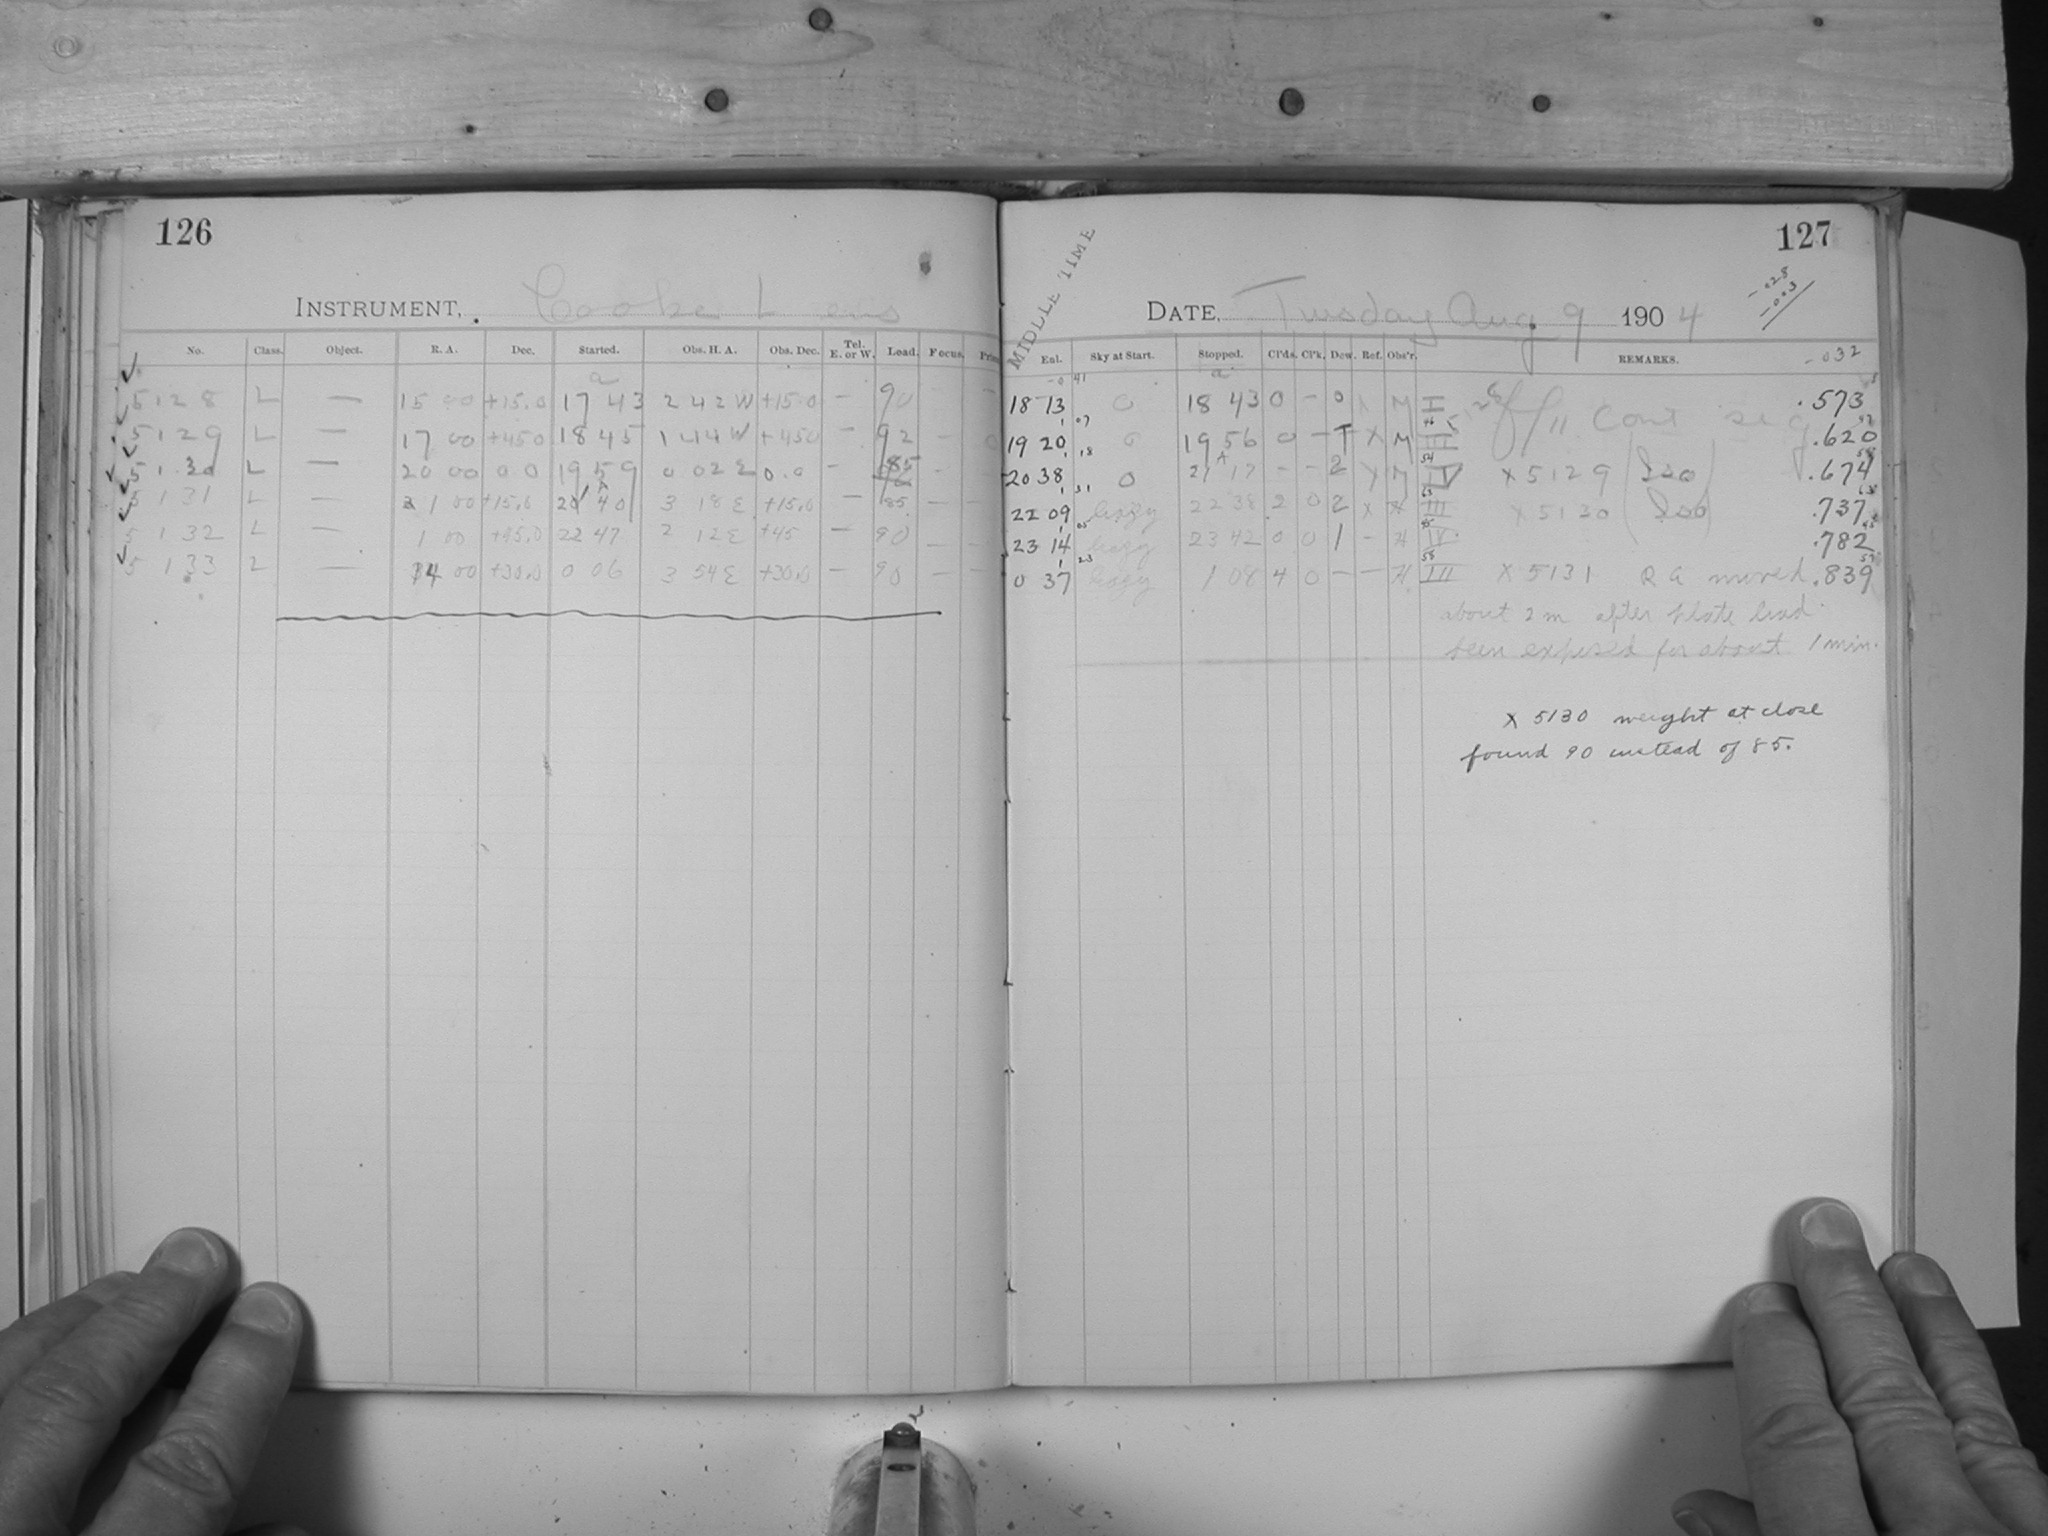 126
INSTRUMENT, Cooke Lens
No. Class. Object. R. A. Dec. Started. Obs. H. A. Obs. Dec. Tel. E. or W. Load. Focus.
5128 L — 15 00 +15.0 17 43 2 42 W +15.0 — 90 —
5129 L — 17 00 +45.0 18 45 1 44 W +45.0 — 92 —
5130 L — 20 00 0.0 19 59 0 02 E 0.0 — 85 —
5131 L — 1 00 +15.0 20 40 3 18 E +15.0 — 85 — —
5132 L — 1 00 +45.0 22 47 2 12 E +45 — 90 — —
5133 L — 4 00 +30.0 0 06 3 54 E +30.0 — 90 — —
127
MIDDLE TIME
-.028
-.003
DATE, Tuesday Aug 9 1904
Enl. Sky at Start. Stopped. Cl'ds. Cl'k. Dew. Ref. Obs'r. REMARKS. -.032
18 13 0 18 43 0 — 0 X M I Cont seq .573
19 20 0 19 56 0 — T X M .620
20 38 0 21 17 — — 2 X M IV X 5129 .674
22 09 hazy 22 38 2 0 2 X H III X 5130 .737
23 14 hazy 23 42 0 0 1 — H IV .782
0 37 hazy 1 08 4 0 — — H III X 5131 R A moved .839
about 2 m after plate had
been exposed for about 1 min.
X 5130 weight at close
found 90 instead of 85.